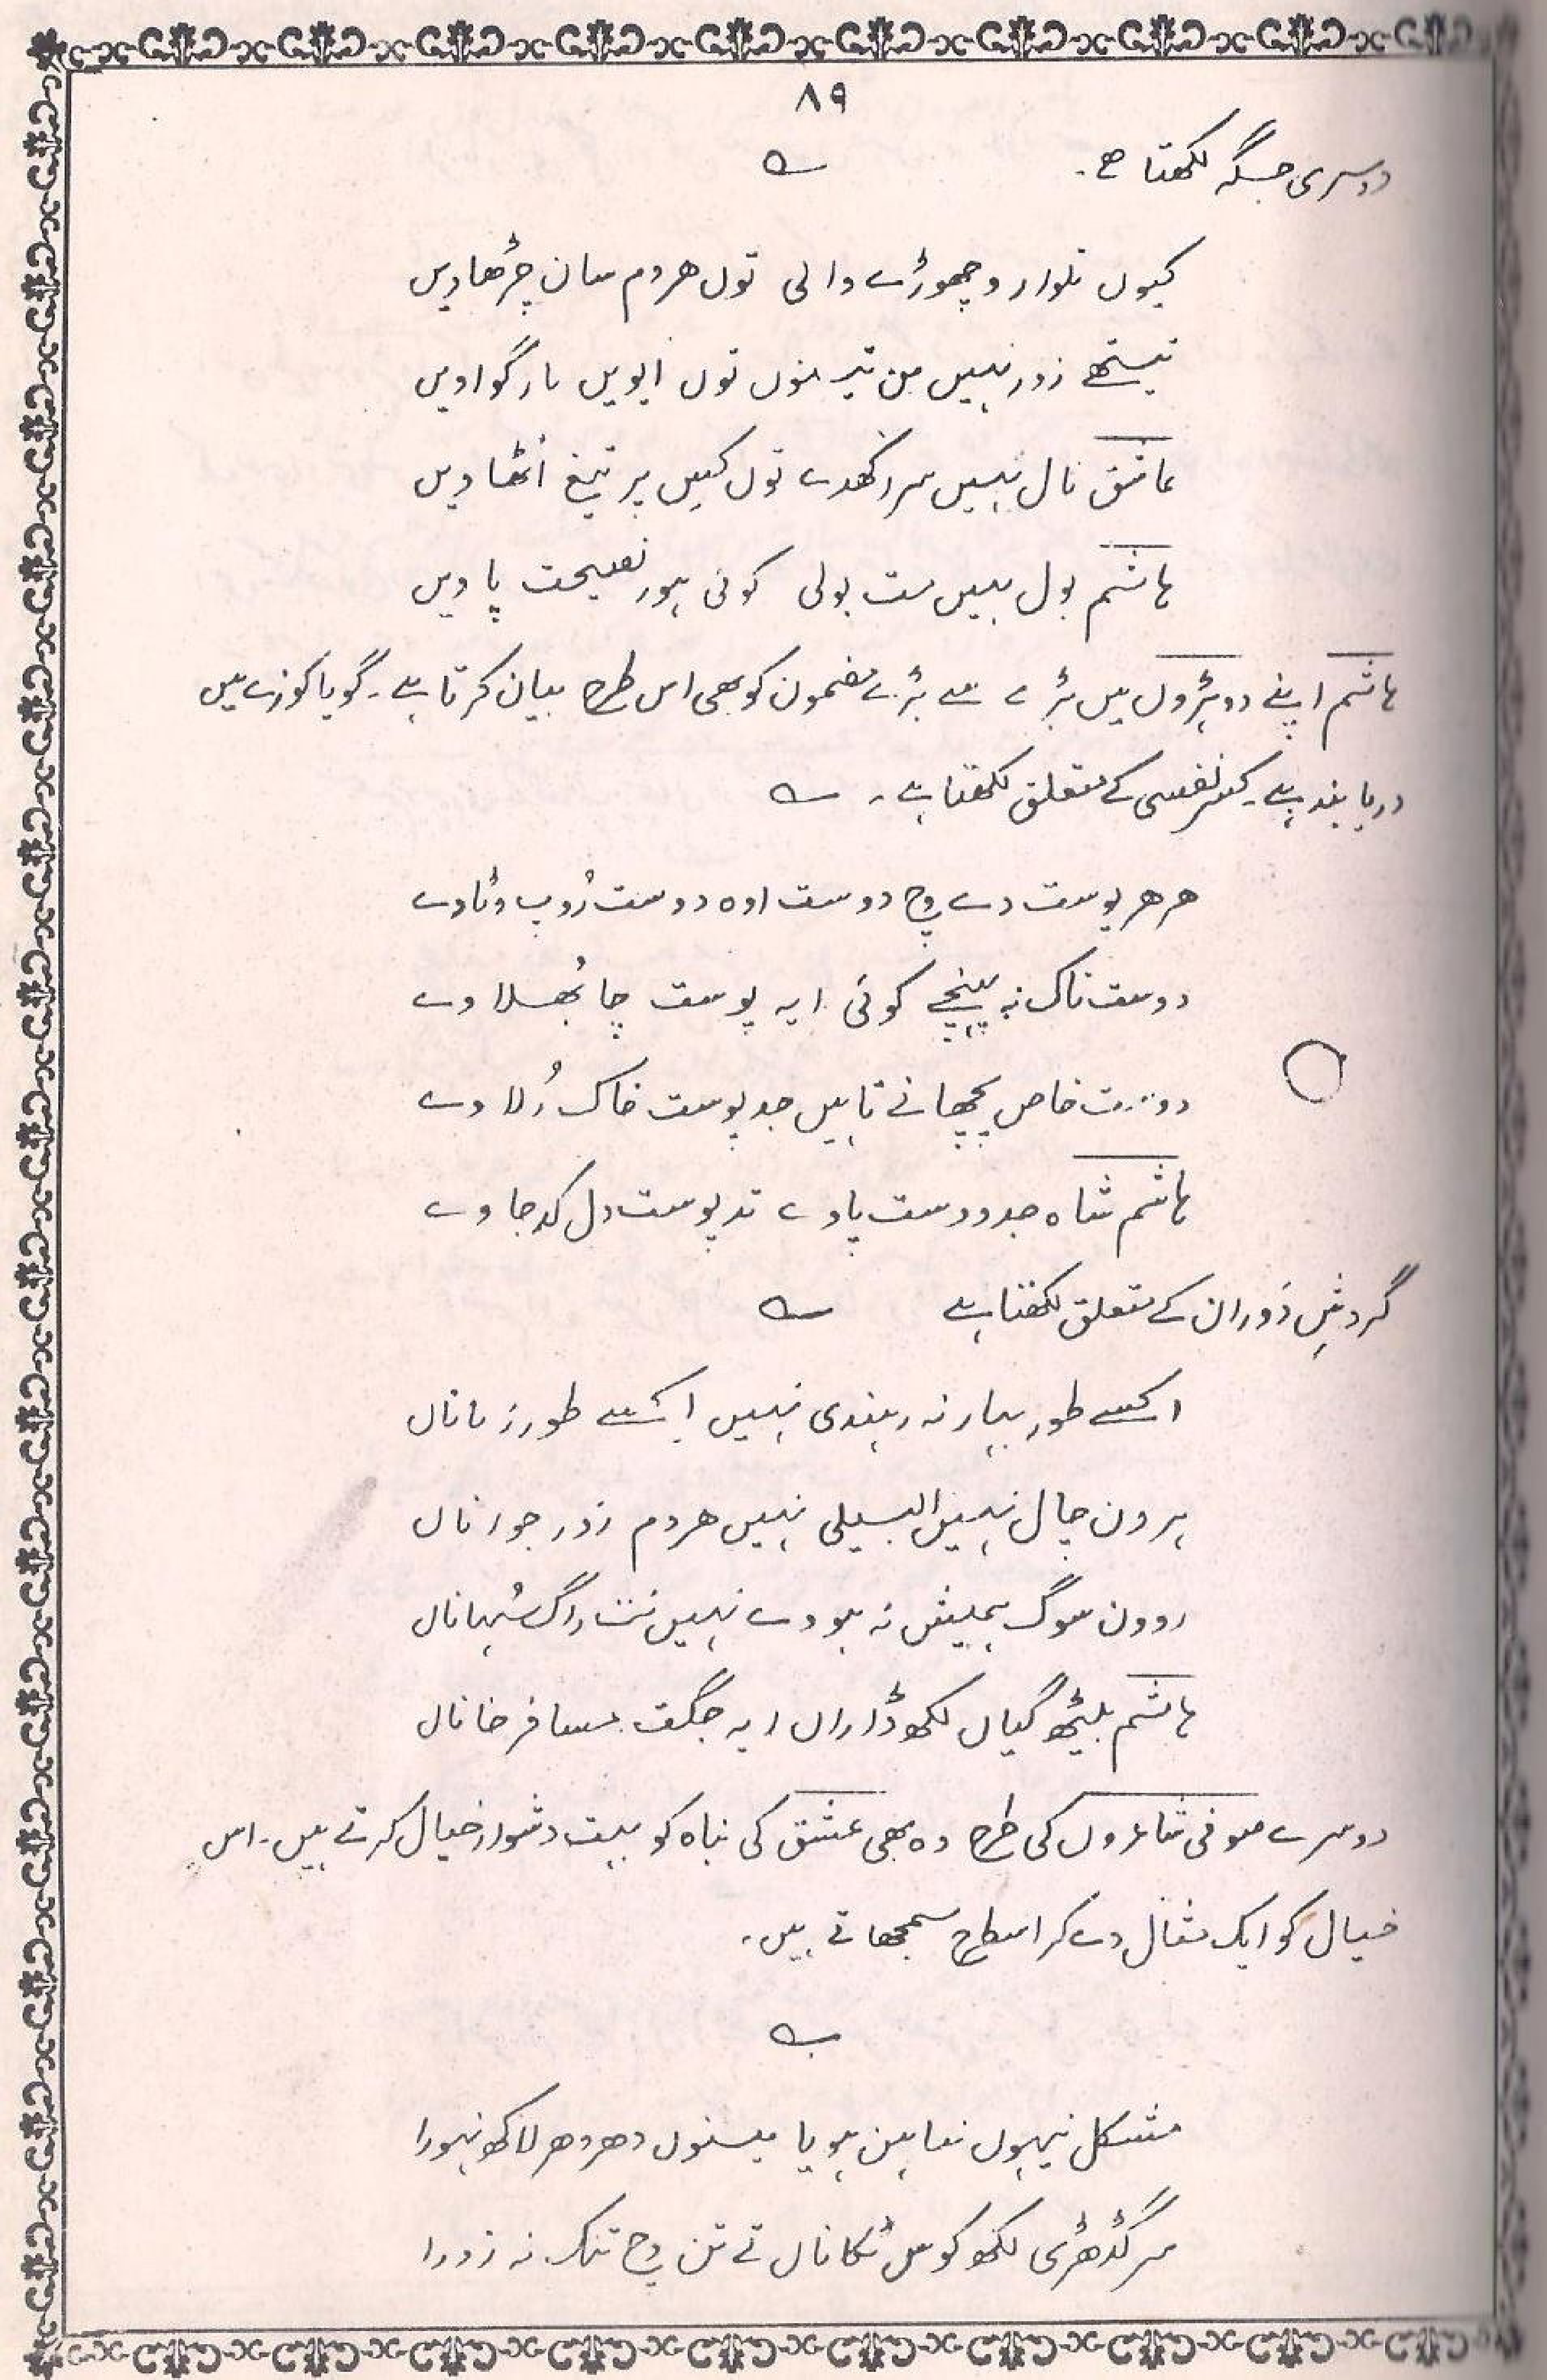 ۸۹
دوسری جگہ لکھتا ہے۔
کیوں تلوار وچھوڑے والی توں ہردم سان چڑھاویں
تیتھے زور نہیں بن تیر نوں توں ایویں مار گواویں
عاشق نال نہیں سر رکھدے توں کیں پر تیغ اُٹھاویں
ہاشم بول نہیں مت بولی کوئی ہور نصیحت پاویں
ہاشم اپنے دوہڑوں میں بڑے سے بڑے مضمون کو بھی اس طرح بیان کرتا ہے۔ گویا کوزے میں
دریا بند ہے۔ کسرِ نفسی کے متعلق لکھتا ہے۔
ہر ہر پوست دے وچ دوست اوہ دوست رُوپ وٹاوے
دوست تاک نہ پہنچے کوئی ایہ پوست چا بُھلاوے
دوست خاص پچھانے تاہیں جد پوست خاک رُلاوے
ہاشم شاہ جد دوست پاوے تد پوست دل کد جاوے
گردشِ دَوران کے متعلق لکھتا ہے
اکسے طور بہار نہ رہندی نہیں اِکسے طور زمانال
ہر ون چال نہیں البیلی نہیں ہردم زور جوانال
روون سوگ ہمیش نہ ہووے نہیں نت راگ شُہانال
ہاشم بیٹھ گیاں لکھ ڈاراں ایہ جگت مسافرخانال
دوسرے صوفی شاعروں کی طرح وہ بھی عشق کی نباہ کو بہت دشوار خیال کرتے ہیں۔ اس
خیال کو ایک مثال دے کر اسطرح سمجھاتے ہیں۔
مشکل نیہوں نباہن ہویا مینوں دھر دھر لاکھ نہورا
سر گٹھڑی لکھ کوس ٹکانال تے تن وچ تنک نہ زورا